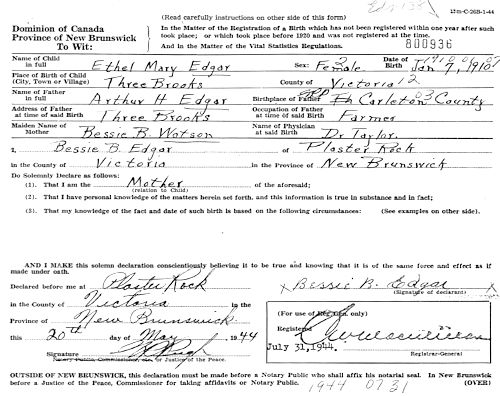 15m-C-26B-1-44
(Read carefully instructions on other side of this form)
Dominion of Canada
Province of New Brunswick
To Wit:
In the Matter of the Registration of a Birth which has not been registered within one year after such
took place; or which took place before 1920 and was not registered at that time.
And in the Matter of the Vital Statistics Regulations.
800936
Name of Child in full Ethel Mary Edgar Sex: Female Date of Birth Jan 7, 1910
Place of Birth of Child (City, Town or Village) Three Brooks County of Victoria 12
Name of Father in full Arthur H Edgar Birthplace of Father Carleton 03 County
Address of Father at time of said Birth Three Brooks Occupation of Father at time of said Birth Farmer
Maiden Name of Mother Bessie B. Watson Name of Physician at said Birth Dr Taylor.
I, Bessie B. Edgar of Plaster Rock
in the County of Victoria in the Province of New Brunswick
Do Solemnly Declare as follows:
(1). That I am the Mother of the aforesaid;
(relation to Child)
(2). That I have personal knowledge of the matters herein set forth, and this information is true in substance and in fact;
(3). That my knowledge of the fact and date of such birth is based on the following circumstances: (See examples on other side).
AND I MAKE this solemn declaration conscientiously believing it to be true and knowing that it is of the same force and effect as if
made under oath.
Declared before me at Plaster Rock
x Bessie B. Edgar x
(Signature of declarant)
in the County of Victoria in the
Province of New Brunswick
this 20th day of May, 1944
Signature
Notary Public, Commissioner, etc., or Justice of the Peace.
(For use of Registrar only)
Registered
July 31, 1944.
Registrar-General
OUTSIDE OF NEW BRUNSWICK, this declaration must be made before a Notary Public who shall affix his notarial seal. In New Brunswick
before a Justice of the Peace, Commissioner for taking affidavits or Notary Public.
1944 07 31
(OVER)